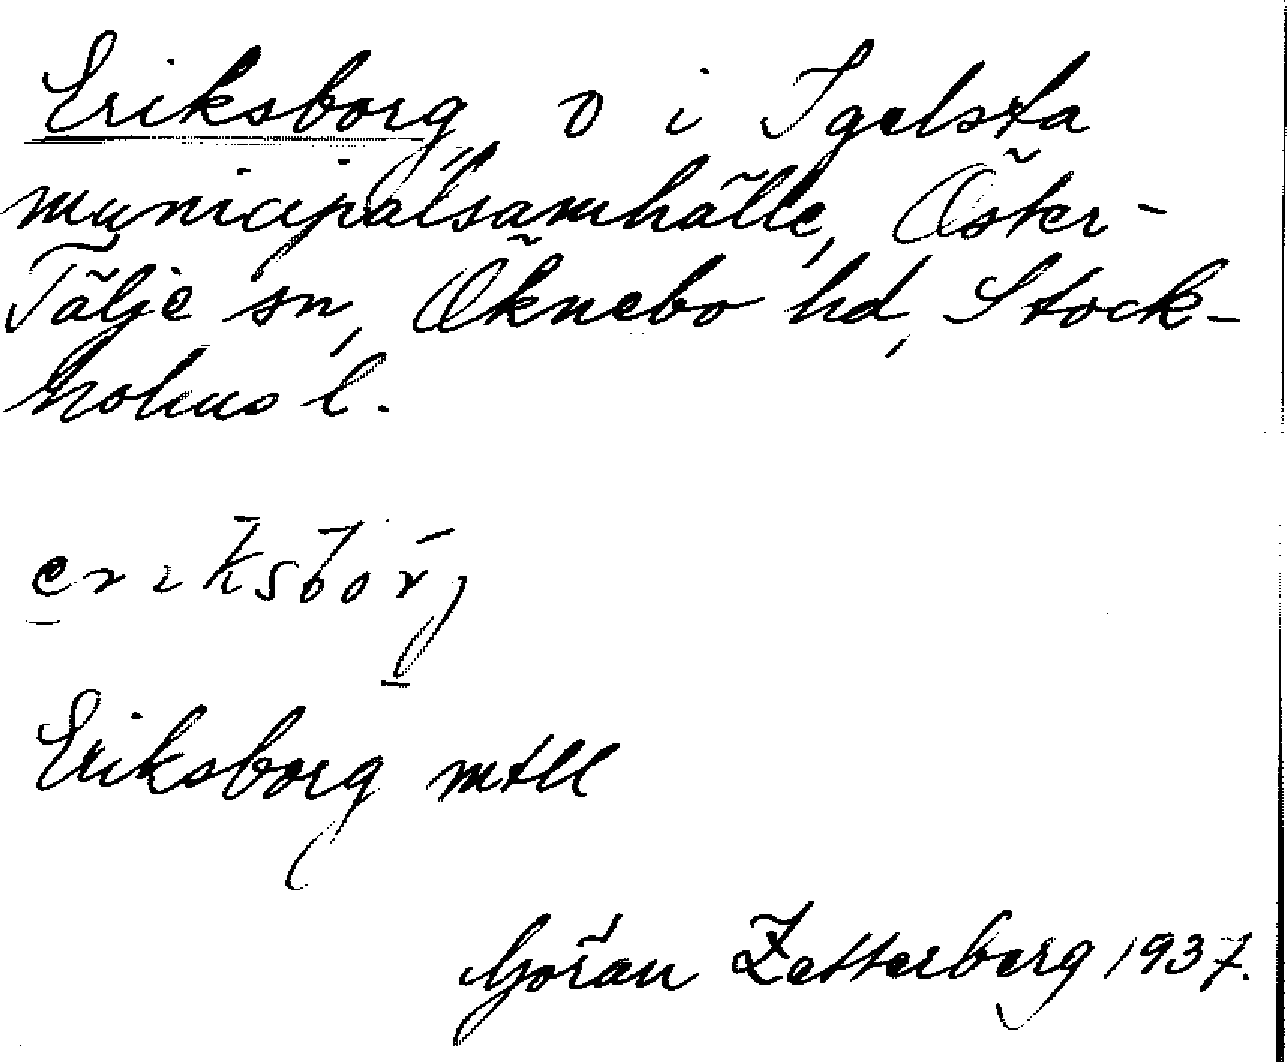 Eriksborg, o i Igelsta
municipalsamhälle, Öster-
Tälje sn, Öknebo hd, Stock-
holms l.
eriksborj
Eriksborg mtll
Göran Zetterberg 1937.